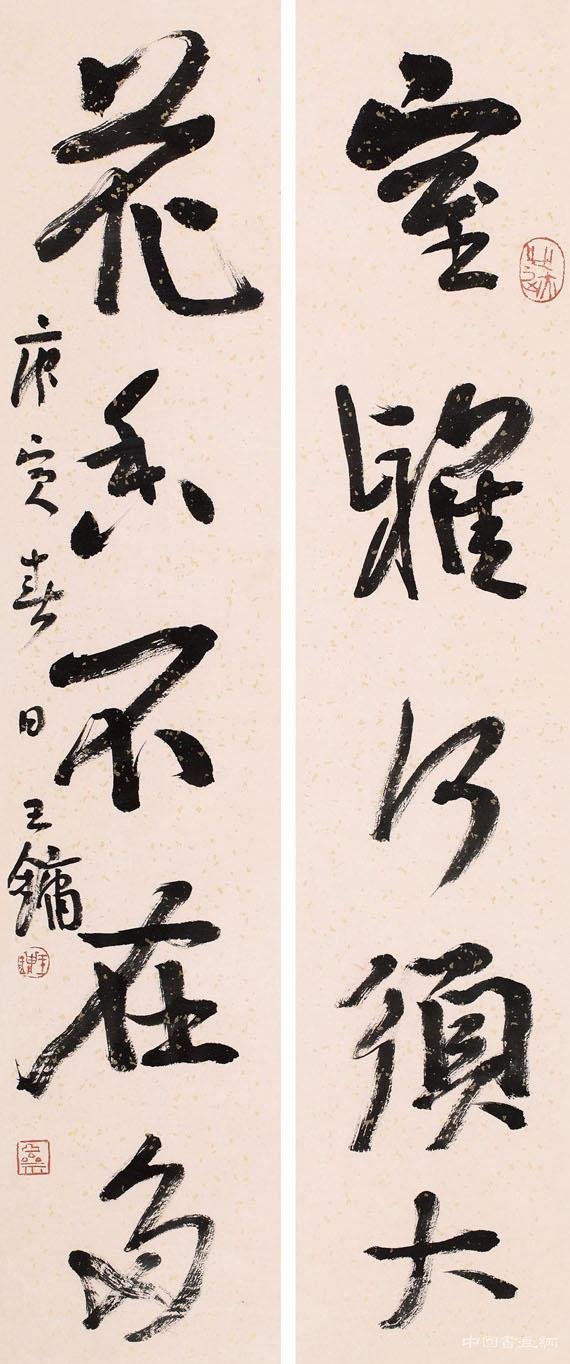 室雅何須大
花香不在多
庚寅春日王鏞
中国书画网